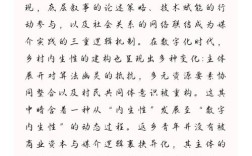 现，底层叙事的论述策略、技术赋能的行
动参与，以及社会关系的网络联结成为媒
介实践的三重逻辑机制。在数字化时代，
乡村内生性的建构也呈现出多种变化：主体
展开对算法幽灵的抵抗，多元资源要素协
同整合以及村民共同体意识被重构。这其
中暗含着一种从“内生性”发展至“数字
内生性”的动态过程。返乡青年并没有被
商业资本与媒介逻辑裹挟异化，其主体的